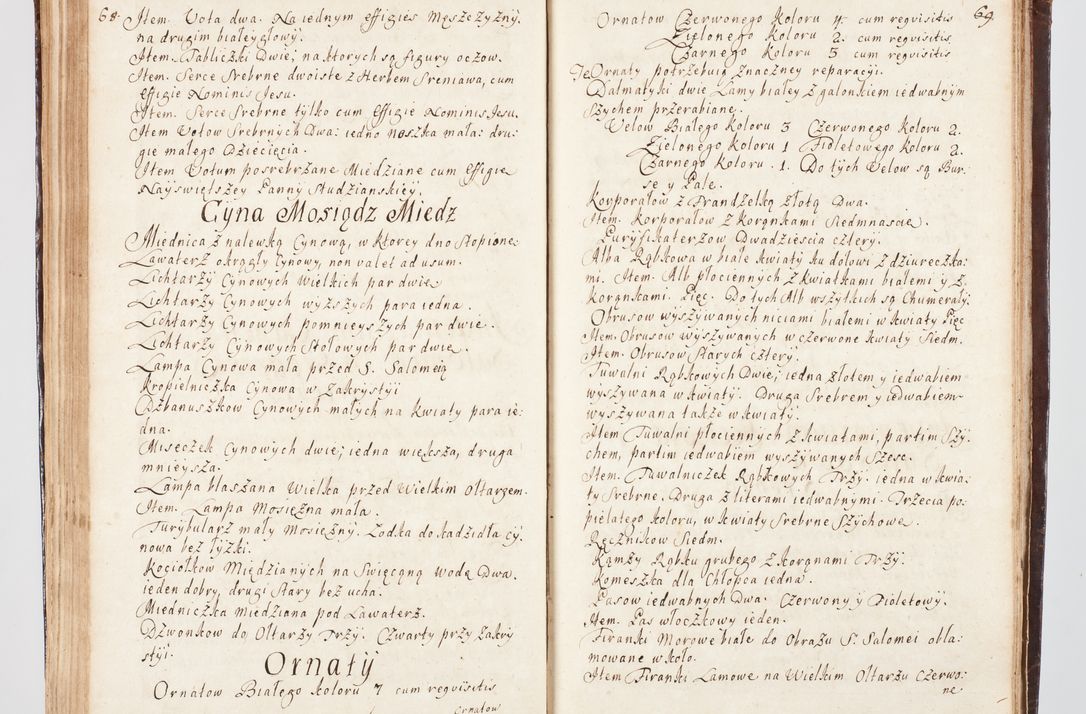 68.
Item. Vota dwa. Na iednym effigies Męszczyzny,
na drugim białeygłowy.
Item. Tabliczki Dwie, na ktorych są figury oczow.
Item. Serce Srebrne dwoiste z Herbem Sreniawa, cum
effigie Nominis Jesu.
Item. Serce Srebrne tylko cum Effigie Nominis Jesu.
Item Votow Srebrnych Dwa: iedno noszka mała: dru-
gie małego Dziecięcia.
Item Votum posrebrzane Miedziane cum Effigie
Nayświętszey Panny Studzianskiey.
Cyna Mosiądz Miedz
Miednica z nalewką Cynową, w ktorey dno stopione.
Lawaterz okrągły Cynowy, non valet ad usum.
Lichtarzy Cynowych Wielkich par dwie
Lichtarzy Cynowych wyższych para iedna.
Lichtarzy Cynowych pomnieyszych par dwie.
Lichtarzy Cynowych Stołowych par dwie.
Lampa Cynowa mała przed S. Salomeią
Kropielniczka Cynowa w Zakrystyi
Dzbanuszkow Cynowych małych na kwiaty para ie:
dna.
Miseczek Cynowych dwie; iedna większa, druga
mnieysza.
Lampa blaszana Wielka przed Wielkim Ołtarzem.
Item. Lampa Mosiężna mała.
Turybularz mały Mosiężny. Łodka do kadzidła cy:
nowa bez łyżki.
Kociołkow Miedzianych na Swięconą Wodę Dwa.
ieden dobry, drugi stary bez ucha.
Miedniczka miedziana pod Lawaterz.
Dzwonkow do Ołtarzy Trzy. Czwarty przy Zakry
styi.
Ornaty
Ornatow Białego koloru 7 cum reqvisitis
Ornatow
69.
Ornatow Czerwonego koloru 4. cum reqvisitis
Zielonego koloru 2. cum reqvisitis
Czarnego koloru 3 cum reqvisitis
Te Ornaty potrzebuią znaczney reparacyi.
Dalmatyki dwie Lamy białey z galonkiem iedwabnym
szychem przerabiane.
Velow Białego koloru 3 Czerwonego koloru 2.
Zielonego koloru 1 Fioletowego koloru 2.
Czarnego koloru. 1. Do tych Velow są Bur-
se y Pale.
Korporałow z Frandzelką złotą Dwa.
Item. Korporałow z korąnkami Siedmnascie.
Puryfikaterzow Dwadziescia cztery.
Alba Rąbkowa w białe kwiaty ku dołowi z dziureczka:
mi. Item. Alb płociennych z kwiatkami białemi y z
korąnkami. Pięć. Do tych Alb wszytkich są Chumerały.
Obrusow wyszywanych niciami białemi w kwiaty Pięc
Item. Obrusow wyszywanych w czerwone kwiaty Siedm.
Item. Obrusow Starych cztery.
Tuwalni Rąbkowych Dwie; iedna złotem y iedwabiem
wyszywana w kwiaty. Druga Srebrem y iedwabiem
wyszywana także w kwiaty.
Item Tuwalni płociennych z kwiatami, partim szy:
chem, partim iedwabiem wyszywanych Szesc.
Item. Tuwalniczek Rąbkowych Trzy. iedna w kwia:
ty Srebrne. Druga z literami iedwabnymi. Trzecia po:
pielatego koloru, w kwiaty Srebrne Szychowe.
Ręcznikow Siedm.
Kamży Rąbku grubego z korąnami Trzy.
Komeszka dla Chłopca iedna.
Pasow iedwabnych Dwa. Czerwony y Fioletowy.
Item. Pas włoczkowy ieden.
Firanki Morowe białe do Obrazu S. Salomei obla:
mowane w koło.
Item Firanki Lamowe na Wielkim Ołtarzu czerwo:
ne